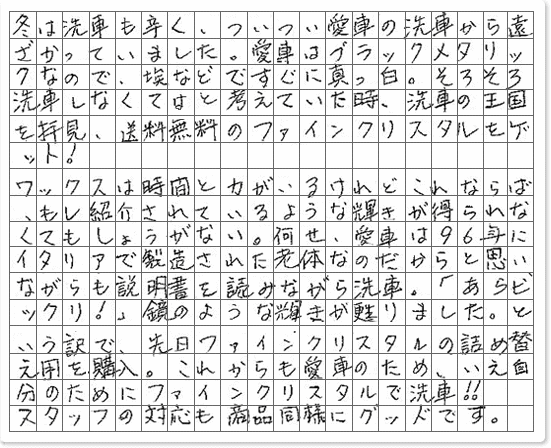 冬は洗車も辛く、ついつい愛車の洗車から遠
ざかっていました。愛車はブラックメタリッ
クなので、埃などですぐに真っ白。そろそろ
洗車しなくてはと考えていた時、洗車の王国
を拝見、送料無料のファインクリスタルをゲ
ット!
ワックスは時間と力がいるけれどこれならば
、もし紹介されているような輝きが得られな
くてもしょうがない。何せ、愛車は96年に
イタリアで製造された老体なのだからと思い
ながらも説明書を読みながら洗車。「あらビ
ックリ!」鏡のような輝きが甦りました。と
いう訳で、先日ファインクリスタルの詰め替
え用を購入。これからも愛車のため、いえ自
分のためにファインクリスタルで洗車!!
スタッフの対応も商品同様にグッドです。